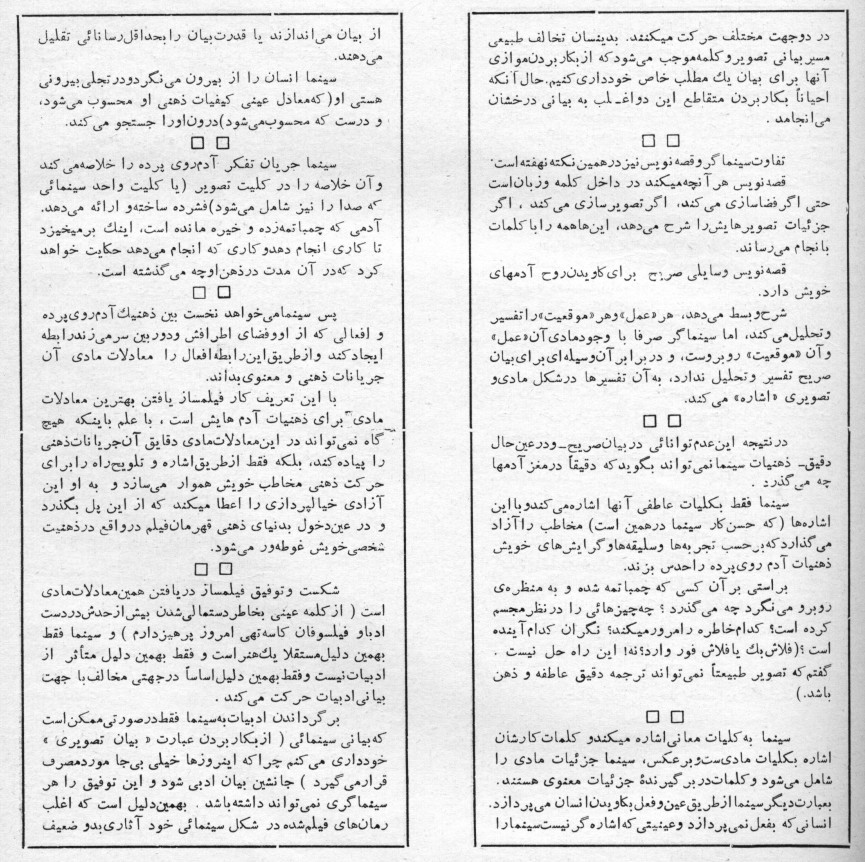 در دوجهت مختلف حرکت میکنند. بدینسان تخالف طبیعی
مسیر بیانی تصویر و کلمه موجب می‌شود که از بکار بردن موازی
آنها برای بیان یك مطلب خاص خودداری کنیم. حال آنکه
احیاناً بکار بردن متقاطع این دو اغـلب به بیانی درخشان
می‌انجامد .
□ □
تفاوت سینماگر و قصه نویس نیز در همین نکته نهفته است.
قصه نویس هر آنچه میکند در داخل کلمه و زبان است
حتی اگر فضاسازی می‌کند، اگر تصویرسازی می‌کند ، اگر
جزئیات تصویرهایش را شرح می‌دهد، این‌ها همه را با کلمات
بانجام می‌رساند.
قصه نویس وسایلی صریح برای کاویدن روح آدمهای
خویش دارد.
شرح و بسط می‌دهد، هر «عمل» و هر «موقعیت» را تفسیر
و تحلیل می‌کند، اما سینماگر صرفا با وجود مادی آن «عمل»
و آن «موقعیت» روبروست، و در برابر آن وسیله‌ای برای بیان
صریح تفسیر و تحلیل ندارد، به آن تفسیرها در شکل مادی و
تصویری «اشاره» می کند.
□ □
در نتیجه این عدم توانائی در بیان صریح ــ و در عین حال
دقیق ــ ذهنیات سینما نمی‌تواند بگوید که دقیقاً در مغز آدمها
چه می‌گذرد .
سینما فقط بکلیات عاطفی آنها اشاره می‌کند و با این
اشاره‌ها ( که حسن کار سینما در همین است) مخاطب را آزاد
می‌گذارد که بر حسب تجربه‌ها و سلیقه‌ها و گرایش‌های خویش
ذهنیات آدم روی پرده را حدس بزند.
براستی بر آن کسی که چمباتمه شده و به منظره‌ی
روبرو می‌نگرد چه می‌گذرد ؟ چه چیزهائی را در نظر مجسم
کرده است؟ کدام خاطره را مرور میکند؟ نگران کدام آینده
است ؟(فلاش بك یا فلاش فوروارد؟ نه! این راه حل نیست .
گفتم که تصویر طبیعتاً نمی‌تواند ترجمه دقیق عاطفه و ذهن
باشد.)
□ □
سینما به کلیات معانی اشاره میکند و کلمات کارشان
اشاره بکلیات مادی‌ست و برعکس، سینما جزئیات مادی را
شامل می‌شود و کلمات در بر گیرندهٔ جزئیات معنوی هستند.
بعبارت دیگر سینما از طریق عین و فعل بکاویدن انسان می‌پردازد.
انسانی که بفعل نمی‌پردازد و عینیتی که اشاره گر نیست سینما را
از بیان می‌اندازند یا قدرت بیان را بحداقل رسانائی تقلیل
می‌دهند.
سینما انسان را از بیرون می‌نگرد و در تجلی بیرونی
هستی او( که معادل عینی کیفیات ذهنی او محسوب می‌شود،
و درست که محسوب می‌شود) درون او را جستجو می‌کند.
□ □
سینما جریان تفکر آدم روی پرده را خلاصه می کند
و آن خلاصه را در کلیت تصویر (یا کلیت واحد سینمائی
که صدا را نیز شامل می‌شود) فشرده ساخته و ارائه می‌دهد.
آدمی که چمباتمه زده و خیره مانده است، اینك بر میخیزد
تا کاری انجام دهد و کاری که انجام می‌دهد حکایت خواهد
کرد که در آن مدت در ذهن او چه می‌گذشته است.
□ □
پس سینما می‌خواهد نخست بین ذهنیك آدم روی پرده
و افعالی که از او و فضای اطرافش و دوربین سر می‌زند رابطه
ایجاد کند و از طریق این رابطه افعال را معادلات مادی آن
جریانات ذهنی و معنوی بداند.
با این تعریف کار فیلمساز یافتن بهترین معادلات
مادی برای ذهنیات آدم هایش است ، با علم باینکه هیچ
گاه نمی‌تواند در این معادلات مادی دقایق آن جریانات ذهنی
را پیاده کند، بلکه فقط از طریق اشاره و تلویح راه را برای
حرکت ذهنی مخاطب خویش هموار می‌سازد و به او این
آزادی خیالپردازی را اعطا میکند که از این پل بگذرد
و در عین دخول بدنیای ذهنی قهرمان فیلم در واقع در ذهنیت
شخصی خویش غوطه‌ور می‌شود.
□ □
شکست و توفیق فیلمساز در یافتن همین معادلات مادی
است ( از کلمه عینی بخاطر دستمالی شدن بیش از حدش در دست
ادبا و فیلسوفان کاسه تهی امروز پرهیز دارم ) و سینما فقط
بهمین دلیل مستقلا یك هنر است و فقط بهمین دلیل متأثر از
ادبیات نیست و فقط بهمین دلیل اساساً در جهتی مخالف با جهت
بیانی ادبیات حرکت می‌کند .
برگرداندن ادبیات به سینما فقط در صورتی ممکن است
که بیانی سینمائی ( از بکار بردن عبارت « بیان تصویری »
خودداری می کنم چرا که اینروزها خیلی بی‌جا مورد مصرف
قرار می‌گیرد ) جانشین بیان ادبی شود و این توفیق را هر
سینماگری نمی‌تواند داشته باشد . بهمین دلیل است که اغلب
رمان‌های فیلم شده در شکل سینمائی خود آثاری بدو ضعیف